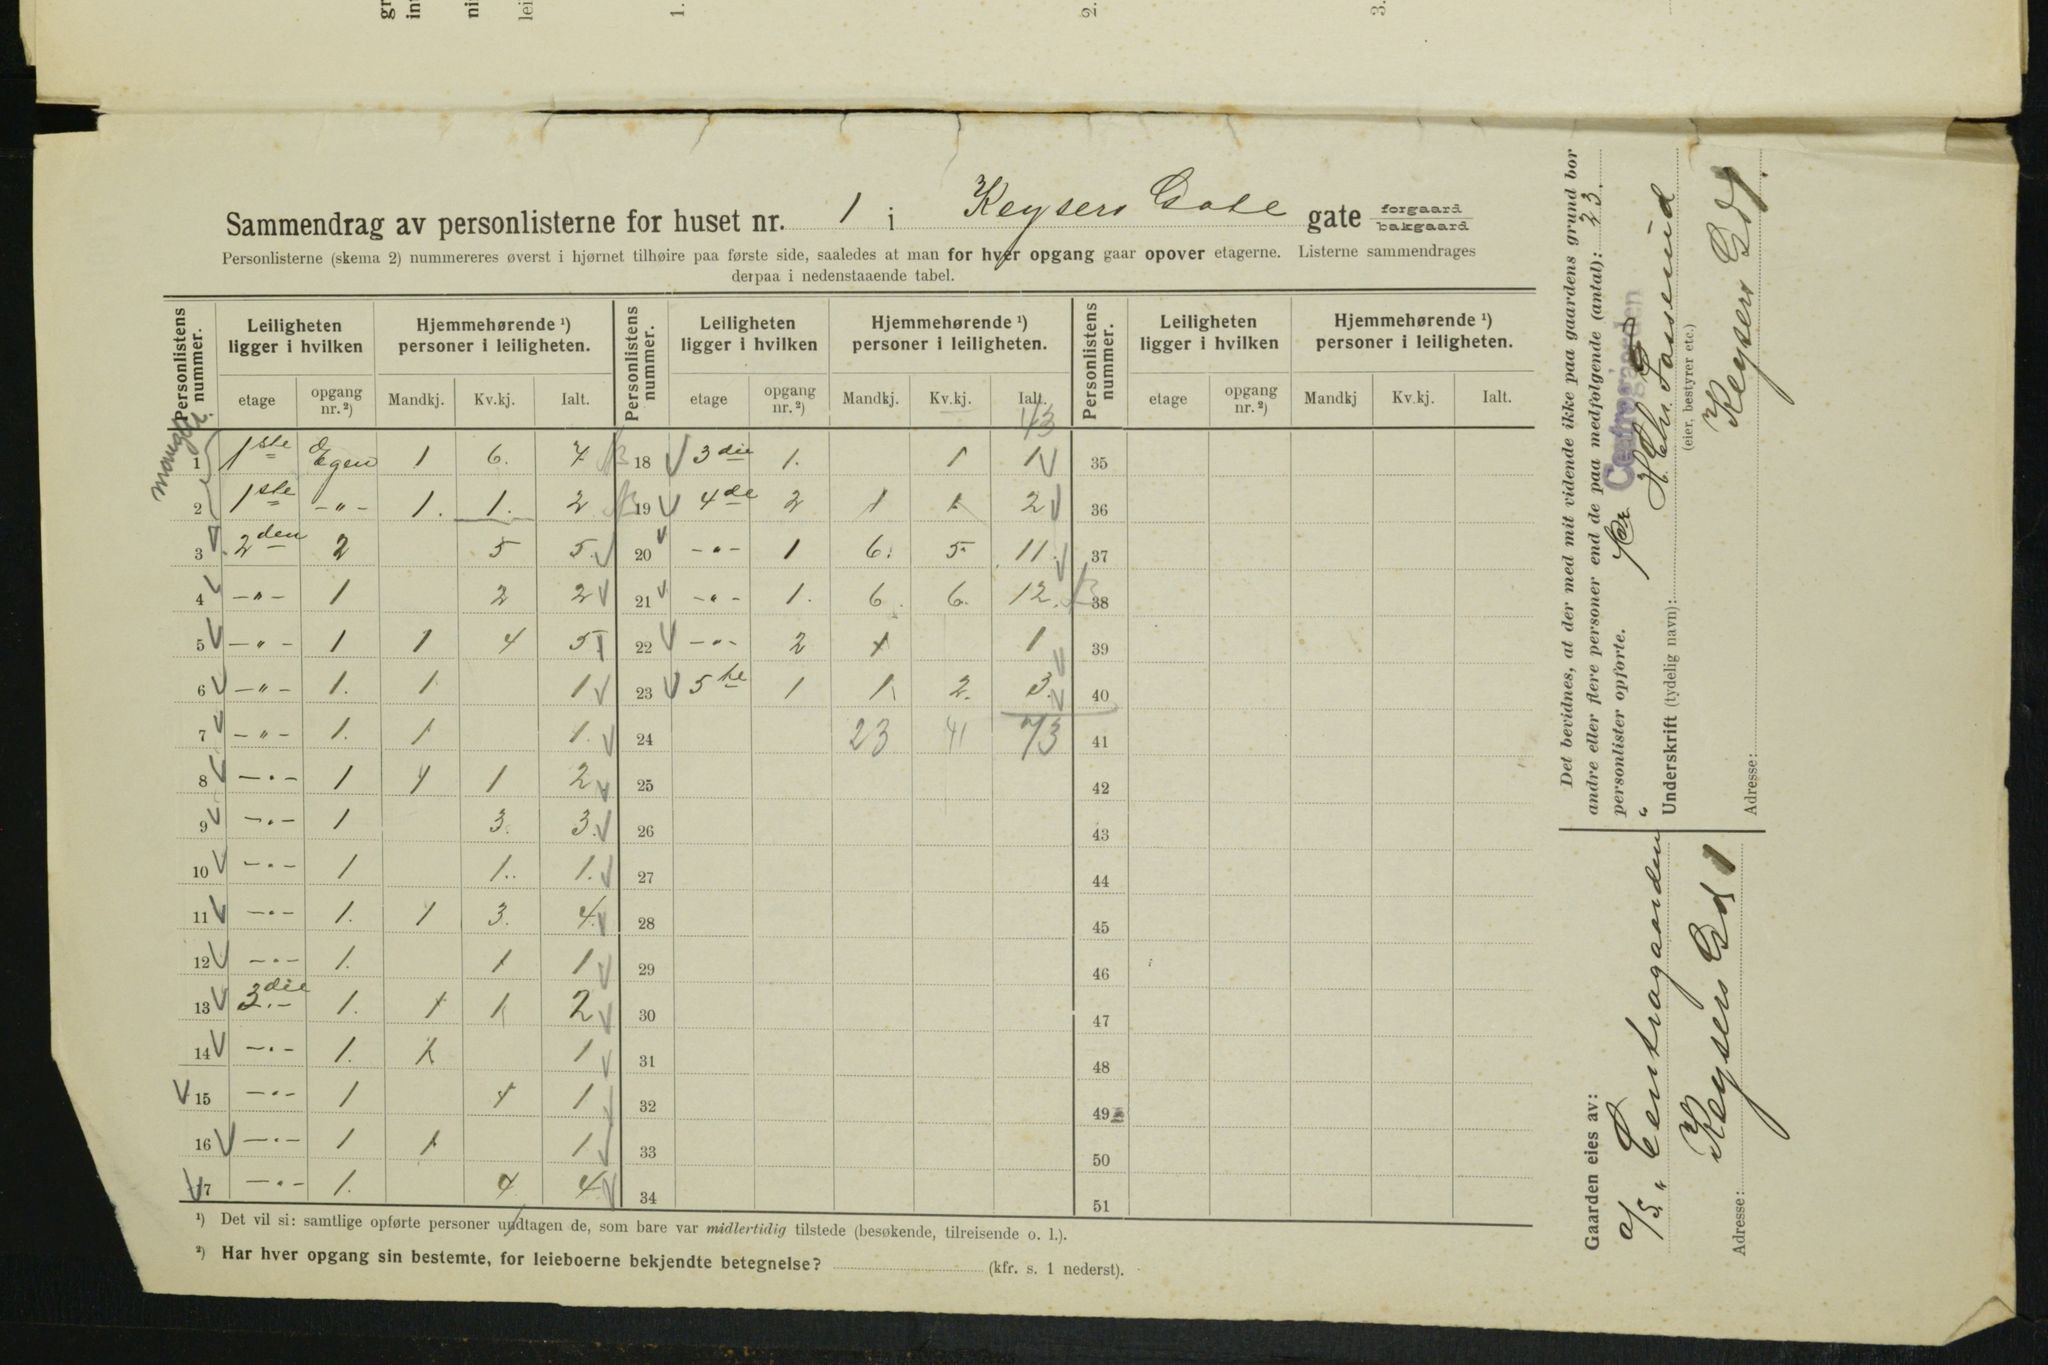 gr
int
ni
lei
1.
2.
3.
Sammendrag av personlisterne for huset nr. 1 i Keysers Gate gate forgaard bakgaard
Personlisterne (skema 2) nummereres øverst i hjørnet tilhøire paa første side, saaledes at man for hver opgang gaar opover etagerne. Listerne sammendrages
derpaa i nedenstaaende tabel.
Personlistens nummer. Leiligheten ligger i hvilken Hjemmehørende ¹) personer i leiligheten. Personlistens nummer. Leiligheten ligger i hvilken Hjemmehørende ¹) personer i leiligheten. Personlistens nummer. Leiligheten ligger i hvilken Hjemmehørende ¹) personer i leiligheten.
etage opgang nr. ²) Mandkj. Kv.kj. Ialt. etage opgang nr. ²) Mandkj. Kv.kj. Ialt. etage opgang nr. ²) Mandkj Kv.kj. Ialt.
43
mangler
1 1ste Egen 1 6. 7 18 3die 1. 1 1 35
2 1ste -"- 1. 1. 2 19 4de 2 1 1 2 36
3 2den 2 5 5. 20 -"- 1 6. 5. 11. 37
4 -"- 1 2 2 21 -"- 1. 6. 6. 12. 38
5 -"- 1 1 4 5 22 -"- 2 1 1 39
6 -"- 1. 1 1 23 5te 1 1 2. 3. 40
7 -"- 1. 1 1. 24 23 41 73 41
8 -"- 1 1 1 2 25 42
9 -"- 1 3. 3. 26 43
10 -"- 1 1.. 1. 27 44
11 -"- 1. 1 3. 4. 28 45
12 -"- 1. 1 1 29 46
13 3die -"- 1. 1 1 2 30 47
14 -"- 1. 1 1 31 48
15 -"- 1 1 1 32 49
16 -"- 1 1 1 33 50
17 -"- 1. 4 4 34 51
¹) Det vil si: samtlige opførte personer undtagen de, som bare var midlertidig tilstede (besøkende, tilreisende o. l.).
²) Har hver opgang sin bestemte, for leieboerne bekjendte betegnelse? (kfr. s. 1 nederst).
Det bevidnes, at der med mit vidende ikke paa gaardens grund bor
andre eller flere personer end de paa medfølgende (antal): 23.
personlister opførte.
Centralgaarden
Underskrift (tydelig navn):
(eier, bestyrer etc.)
Keysers Gd 1.
Adresse:
Gaarden eies av:
A/S. "Centralgaarden"
Keysers Gd 1
Adresse: